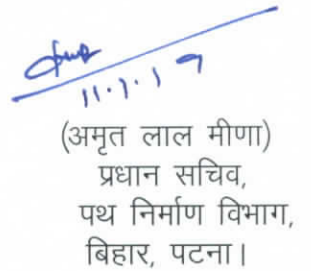 11.1.17
(अमृत लाल मीणा)
प्रधान सचिव,
पथ निर्माण विभाग,
बिहार, पटना।